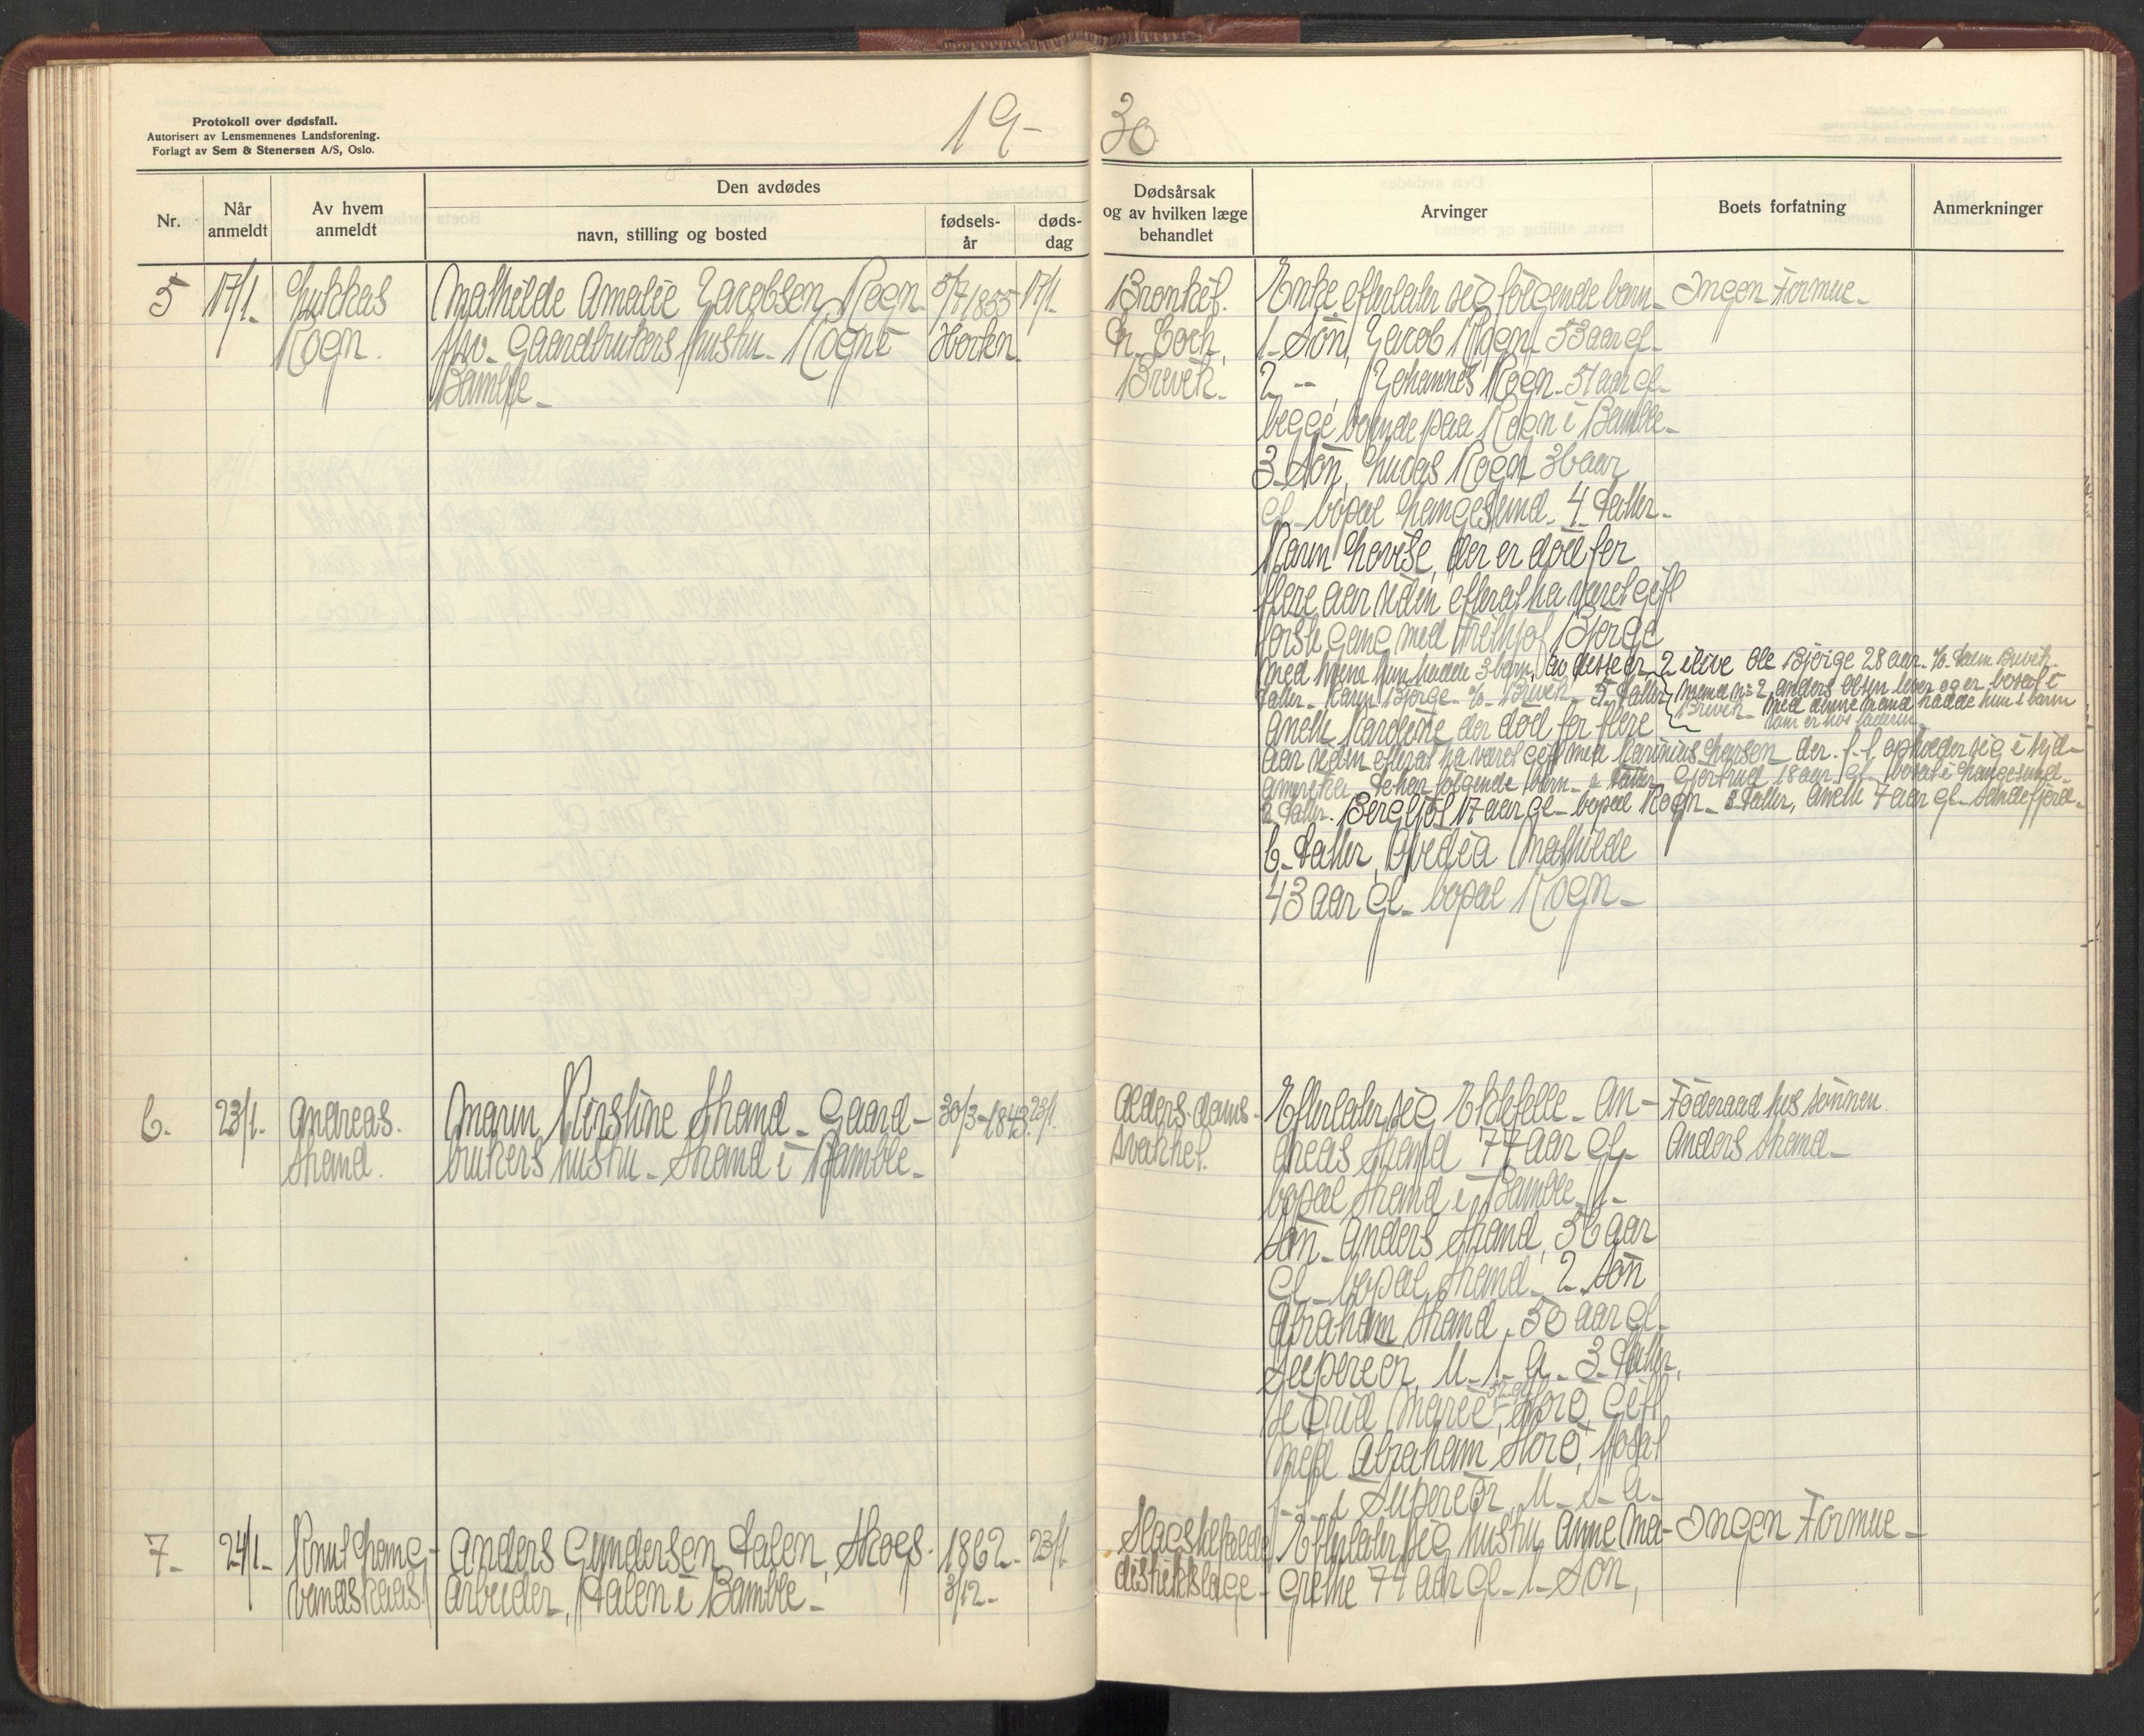 Protokoll over dødsfall.
Autorisert av Lensmennenes Landsforening.
Forlagt av Sem & Stenersen A/S, Oslo.
19- 30
Nr.
Når anmeldt
Av hvem anmeldt
Den avdødes
navn, stilling og bosted
fødsels-
år
døds-
dag
Dødsårsak
og av hvilken læge
behandlet
Arvinger
Boets forfatning
Anmerkninger
5
17/1.
Lukkas
Rogn.
Mathilde Amalie Jacobsen Rogn
fhv. Gaardbrukers hustru. Rogn i
Bamble
5/7 1855
Horten.
17/1.
Bronkit.
Dr. Coch,
Brevik.
Enke efterlater sig følgende barn
1. Søn, Jacob Rogn 53 aar gl.
2 -"- Johannes Rogn. 51 aar gl.
begge boende paa Rogn i Bamble
3. Søn, Lucas Rogn 36 aar
gl. bopæl Langesund. 4. Datter.
Karen Lovise, der er død for
flere aar siden efterat ha været gift
første gang med Frithjof Bjørge
med hvem hun hadde 3 barn, av disse er 2 ilive Ole Bjørge 28 aar.
Datter Karen Bjørge Brevik 5. Datter
Mand nr 2, Anders Olsen lever og er bosat i
Brevik. Med denne mand hadde hun 1 barn
som er hos faderen.
Anette Karoline der død for flere
aar siden efterat ha været gift med Larsen der f.t. opholder sig i Syd-
Amerika. De har følgende barn Datter Gjertrud 18 aar gl. bosat i Langesund
2. Datter. Bergljot 17 aar gl. bopæl Rogn. 3 Datter, Anette 7 aar gl. Sandefjord.
6. Datter, Ovedia Mathilde
43 aar gl. bopæl Rogn
Ingen Formue
6.
23/1.
Andreas.
Strand.
Maren Kirstine Strand. Gaard-
brukers hustru. Strand i Bamble.
30/3-1843.
23/1.
Alderdoms-
svakhet.
Efterlater sig Ektefelle. An-
dreas Strand 77 aar gl.
bopæl Strand i Bamble. 1.
Søn. Anders Strand, 56 aar
gl. bopæl Strand. 2. Søn
Abraham Strand, 50 aar gl.
Superior, U. S. A. 3. Datter,
Marie, 52 gl. Storø, Gift
med Abraham Storø, bosat
f.t. i Superior, U. S. A.
Føderaad hos sønnen
Anders Strand
7.
24/1.
Knut Lang-
vandskaas.
Anders Gundersen Dalen, Skogs-
arbeider, Dalen i Bamble.
1862.
3/12.
23/1.
Slagtilfælde
distriktslæge
Efterlater sig hustru Anne Ma-
grethe 74 aar gl. 1. Søn,
Ingen Formue